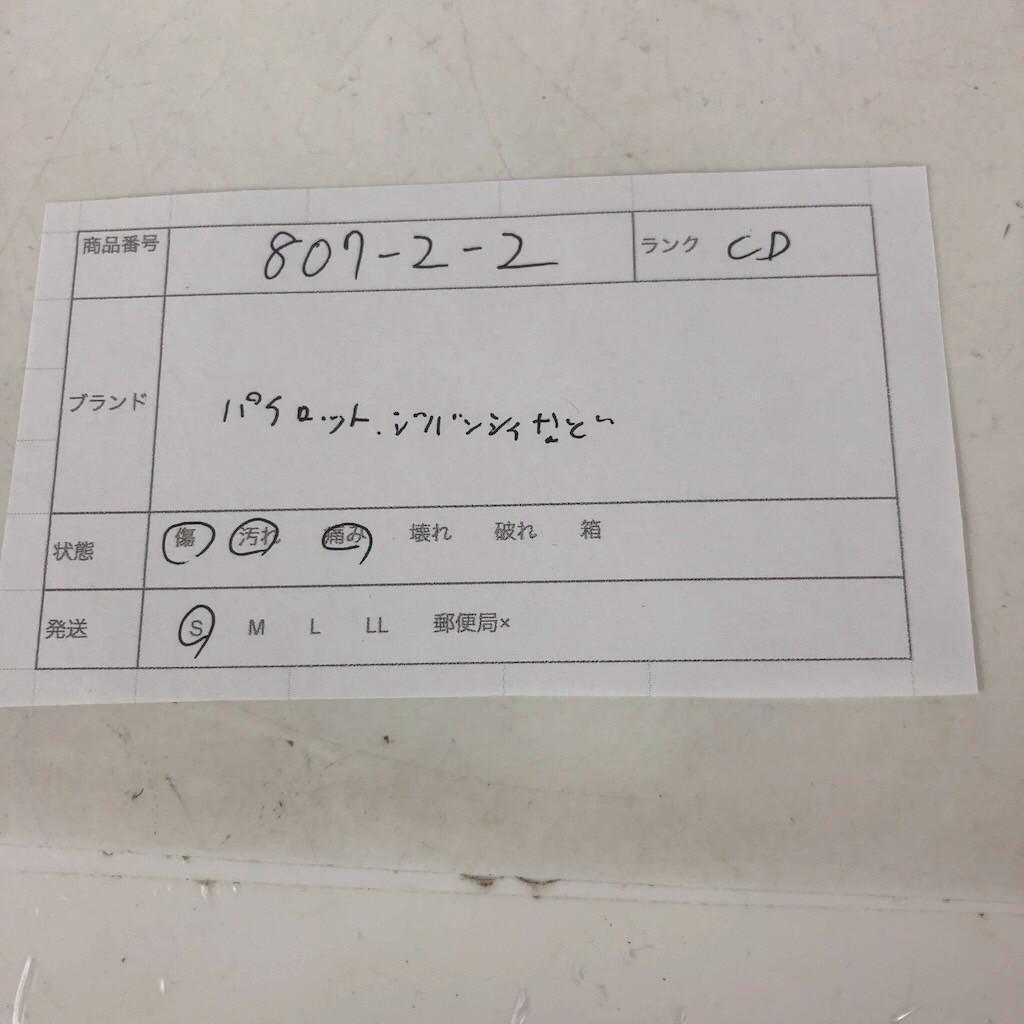 商品番号 807-2-2 ランク CD
ブランド パイロット.ジバンシイなど
状態 傷 汚れ 痛み 壊れ 破れ 箱
発送 S M L LL 郵便局×